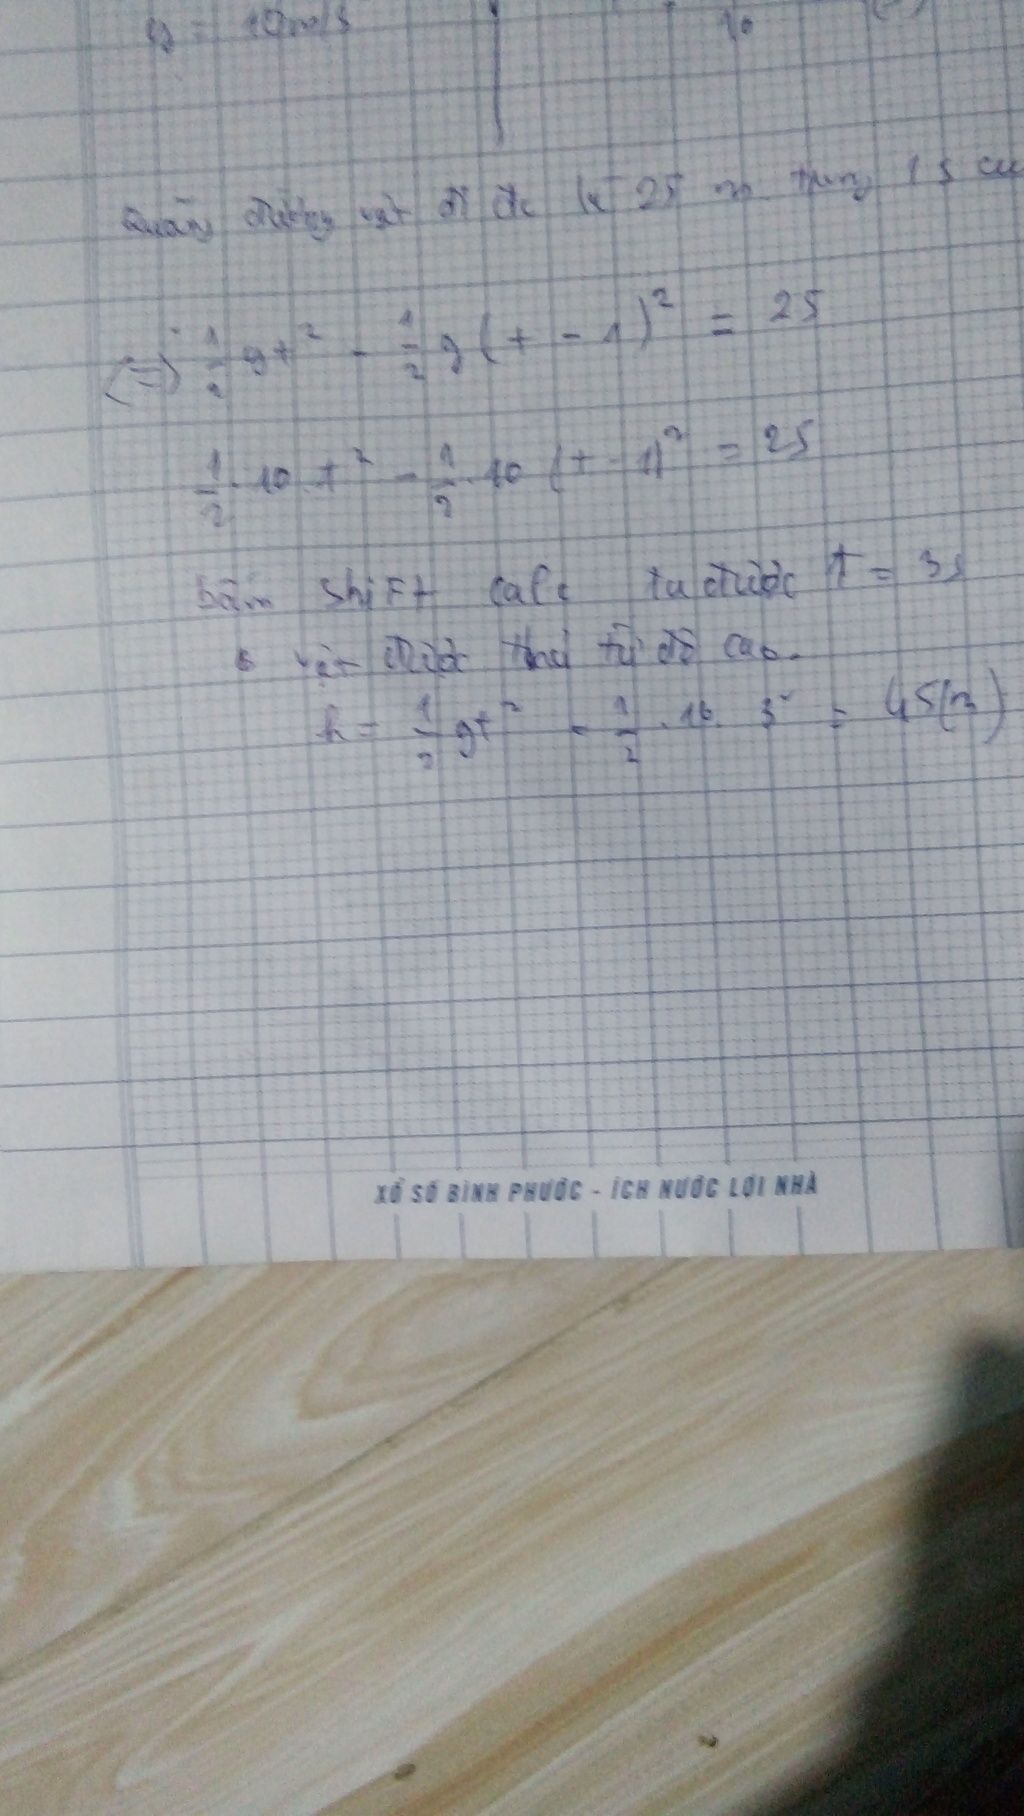 = 10m/s
10
Quãng đường vật đi đc là 25 m trong 1s cu
(=) 1/2 gt² - 1/2 g (t - 1)² = 25
1/2 . 10 . t² - 1/2 . 10 (t - 1)² = 25
bấm Shift calc ta được t = 3s
vật được thả từ độ cao.
h = 1/2 gt² = 1/2 . 10 . 3² = 45(m)
XỔ SỐ BÌNH PHƯỚC - ÍCH NƯỚC LỢI NHÀ